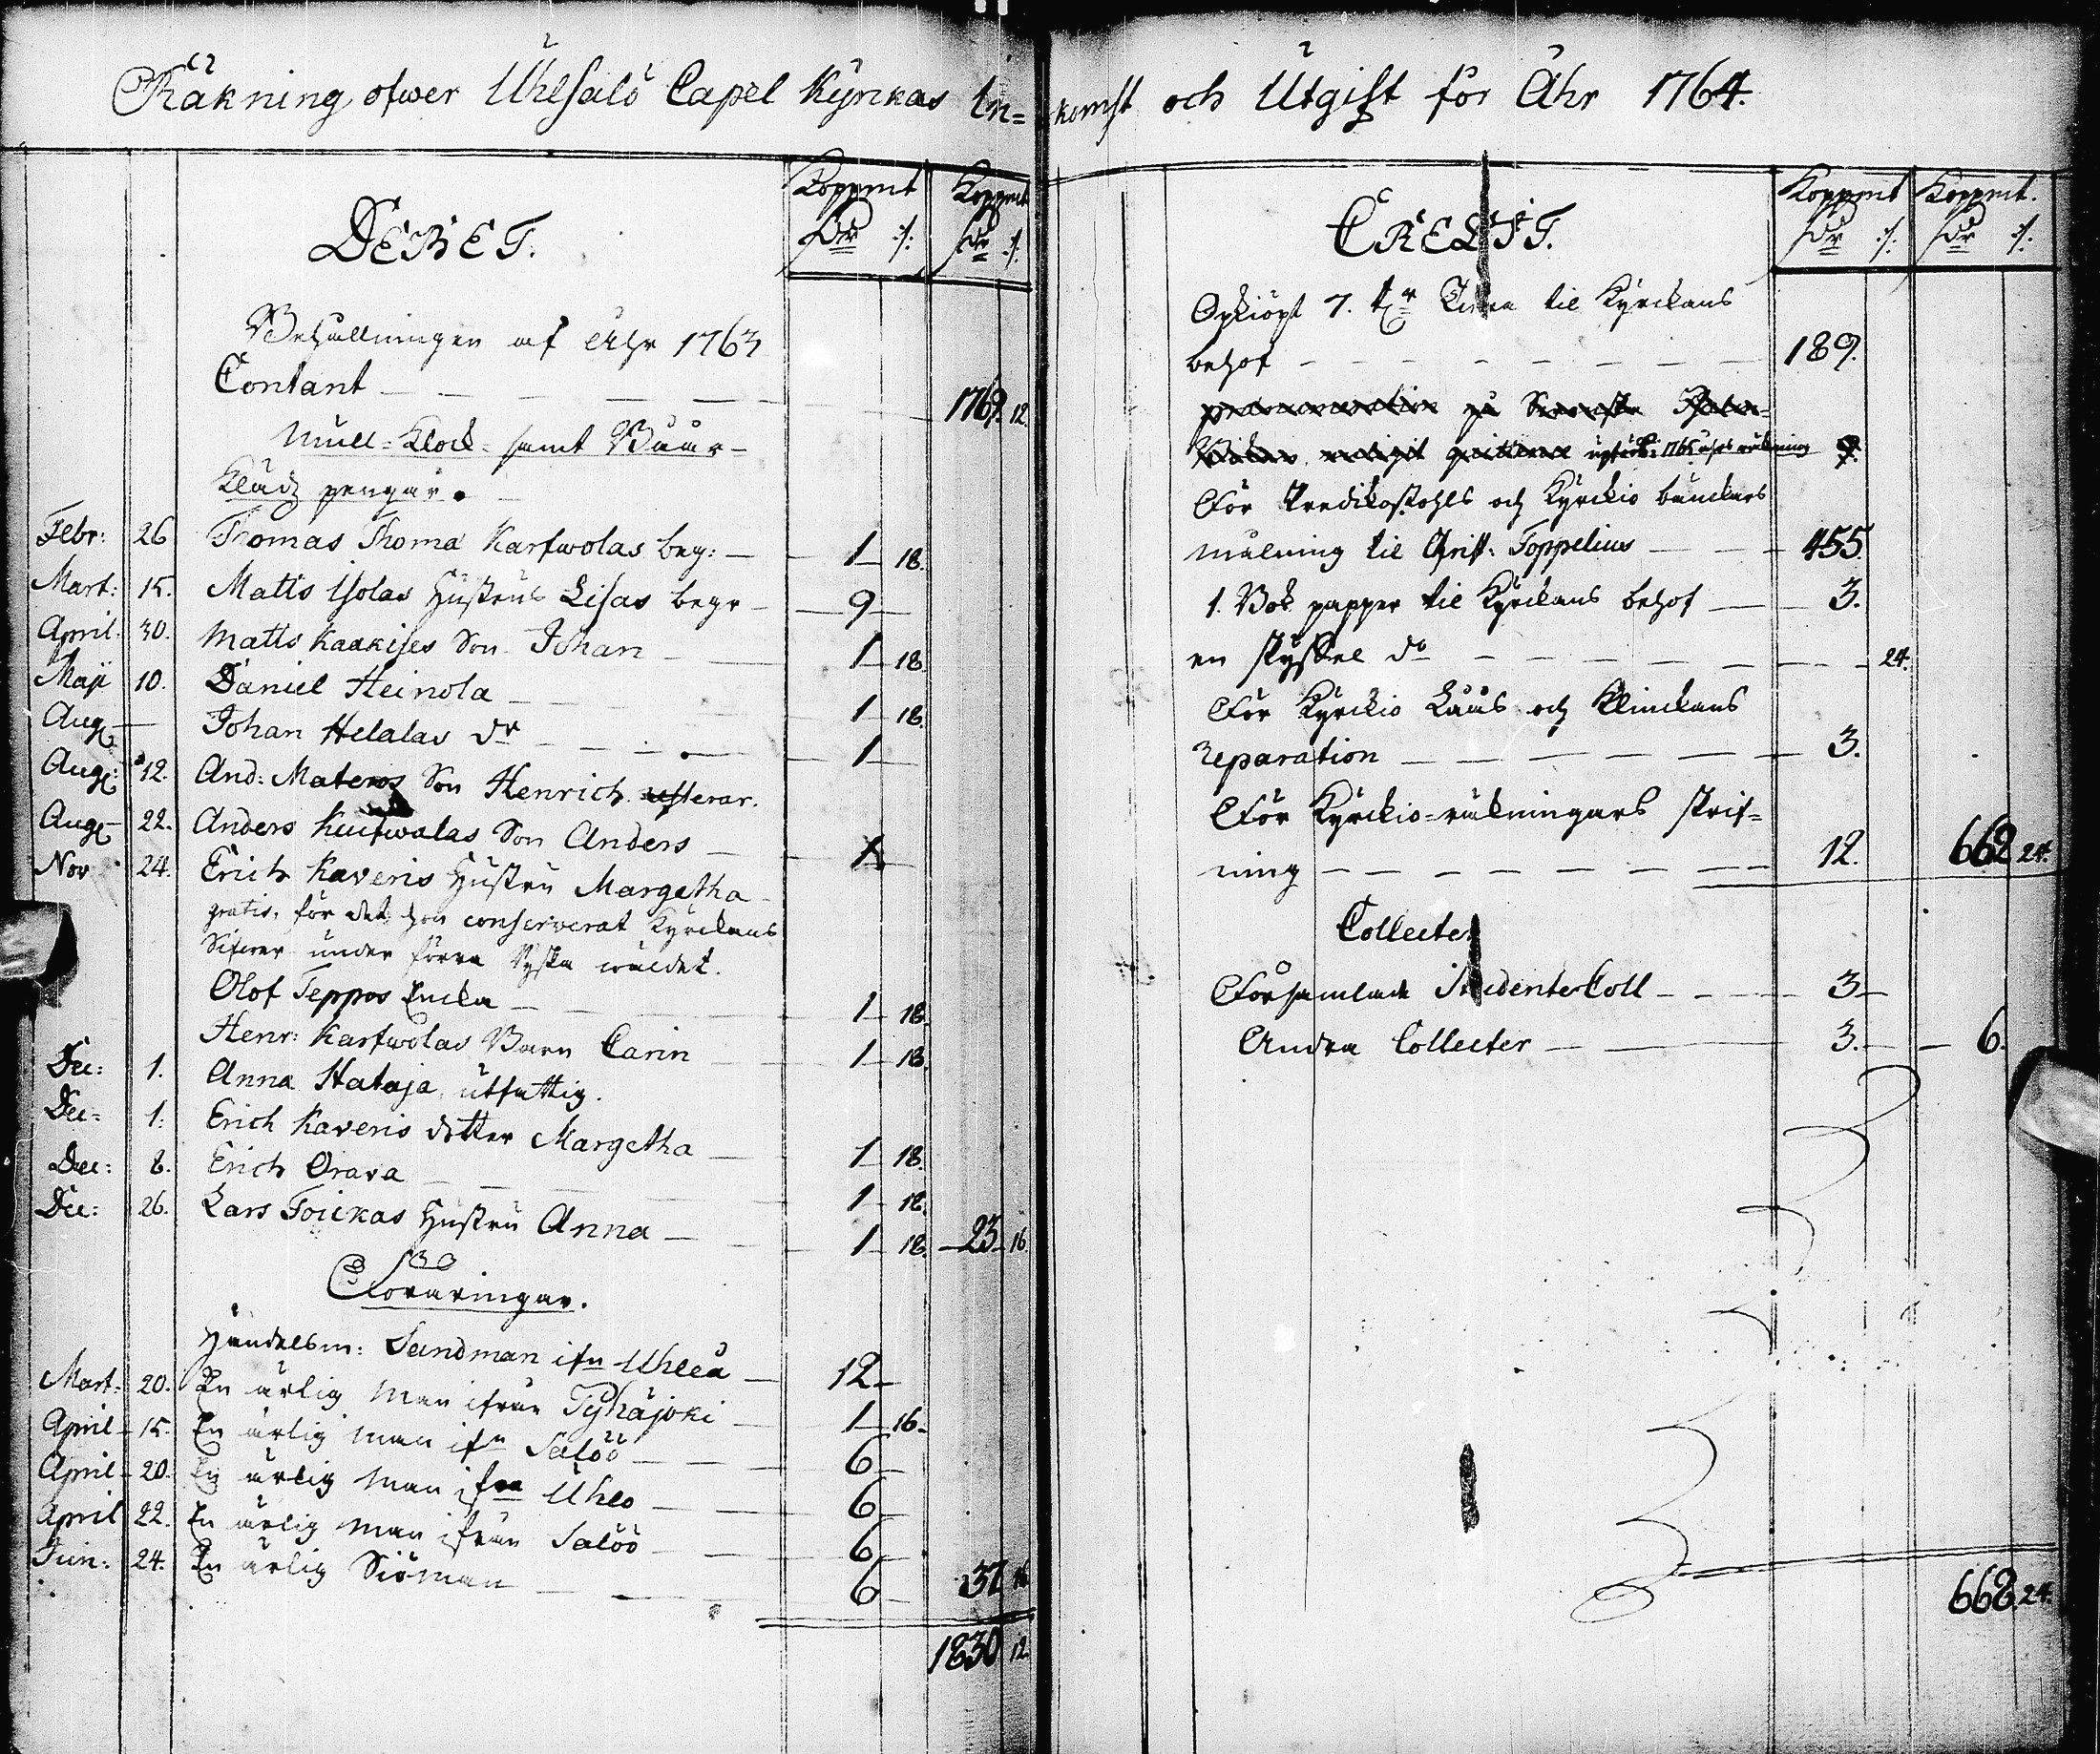 Räkning öfwer Uhlsalö Capel Kÿrkas In=
DEBET.
Koppmt Koppmt
Dr :/: Dr :/:
Behållningen af Åhr 1763
Contant 1769. 12.
Mull= Klock= samt Båår=
Kläd pengar.
Febr: 26 Thomas Thoma Karfwolas beg: 1 18.
Mart: 15. Matts Isolas Hustrus Lisas begr 9
April. 30. Matts Kaakises Son Johan 1 18.
Maji 10. Daniel Heinola 1 18.
Aug Johan Helalas dr 1
Aug: 12. And: Materos Son Henrich
Aug 22. Anders Son Anders 1
Nov 24. Erich Kaveris Hustru Margetha
gratis, för det hon conserverat Kÿrckans
under förra Rÿska wäldet.
Olof Teppos Encka 1 18.
Henr: Karfwolas Barn Carin 1 18.
Dec: 1. Anna Hataja, utfattig.
Dec: 1. Erich Kaveris dotter Margetha 1 18.
Dec: 8. Erich Orava 1 18.
Dec: 26. Lars Toickas Hustru Anna 1 18. 23 16
Föräringar.
Handelsm: Sandman ifn Uhleå 12
Mart: 20. En ärlig Man ifrån Pÿhäjoki 1 16.
April 15. En ärlig man ifn Salöö 6
April 20. En ärlig Man ifrn Uhlo 6
April 22. En ärlig Man ifrån Salöö 6
Jun: 24. En ärlig Siöman 6 37 16
1830 12
komst och Utgift för Åhr 1764.
CREDIT.
Koppmt Koppmt.
Dr :/: Dr :/:
Opkiöpt 7. tr til Kÿrckans
behof 189.
på Swenska
1765 åhrs räkning 9.
För Predikostohls och Kÿrckio bänckars
målning til Toppelius 455.
1. Bok papper til Kÿrckans behof 3.
en skÿffel do 24.
För Kÿrckio Låås och Klinckans
reparation 3.
För Kÿrckio-räkningars skrif=
ning 12. 662 24.
Collecter
Församlade Studente Coll 3
Andra Collecter 3. 6.
668. 24.